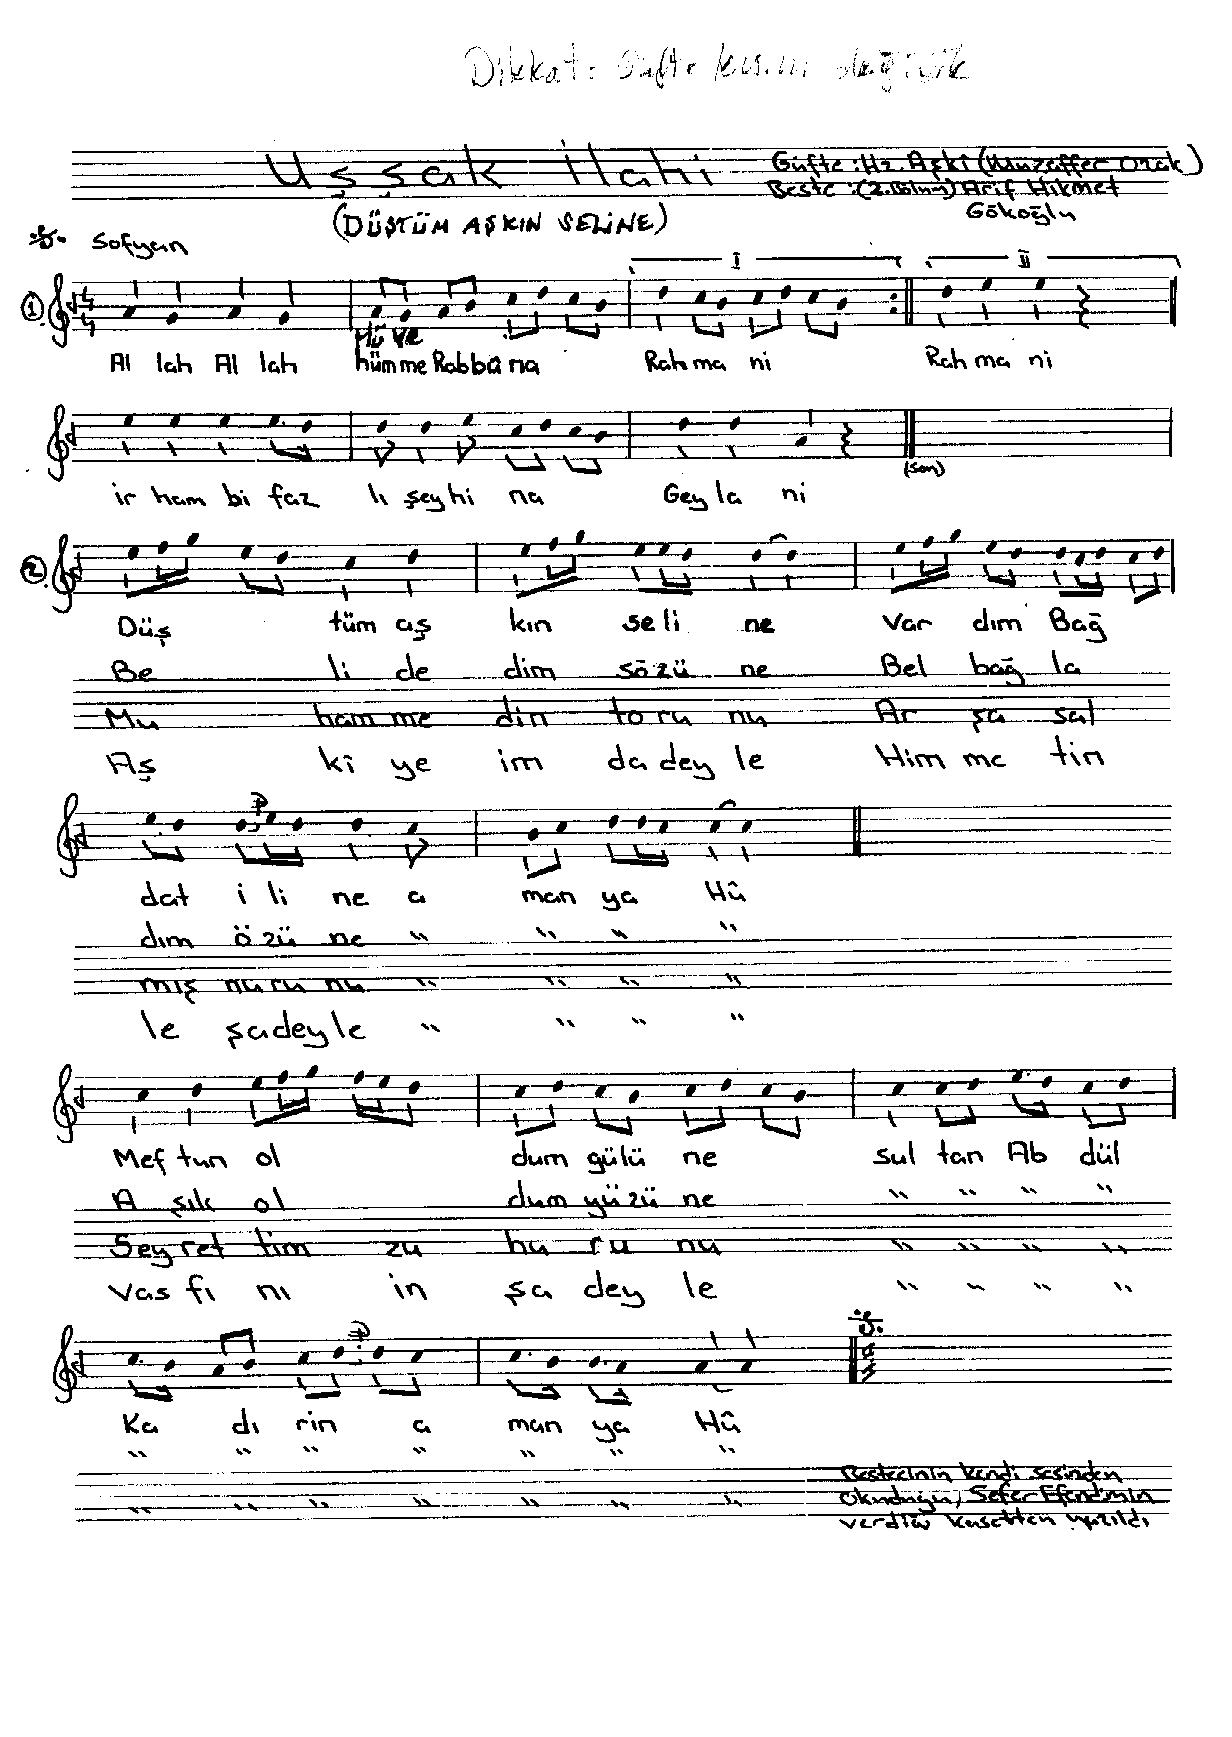 Dikkat: Güfte kısmı değişik
Uşşak İlahi
Güfte : Hz. Aşki (Muzaffer Ozak)
Beste : (2. Bölüm) Arif Hikmet
Gökoğlu
(DÜŞTÜM AŞKIN SELİNE)
Sofyan
I II
1
Hü ve
Al lah Al lah hüm me Rab ba na Rah ma ni Rah ma ni
(son)
ir ham bi faz lı şey hi na Gey la ni
2
Düş tüm aş kın se li ne var dım Bağ
Be li de dim sö zü ne Bel bağ la
Mu ham me din to ru nu Ar şa sal
Aş ki ye im da dey le Him me tin
dat i li ne a man ya Hû
dım ö zü ne " " " "
mış nu ru nu " " " "
le şa dey le " " " "
Mef tun ol dum gü lü ne sul tan Ab dül
A şık ol dum yü zü ne " " " "
Sey ret tim zu hu ru nu " " " "
vas fı nı in şa dey le " " " "
Ka dı rin a man ya Hû
" " " " " " "
" " " " " " "
Bestecinin kendi sesinden
okuduğu, Sefer Efendimin
verdiği kasetten yazıldı